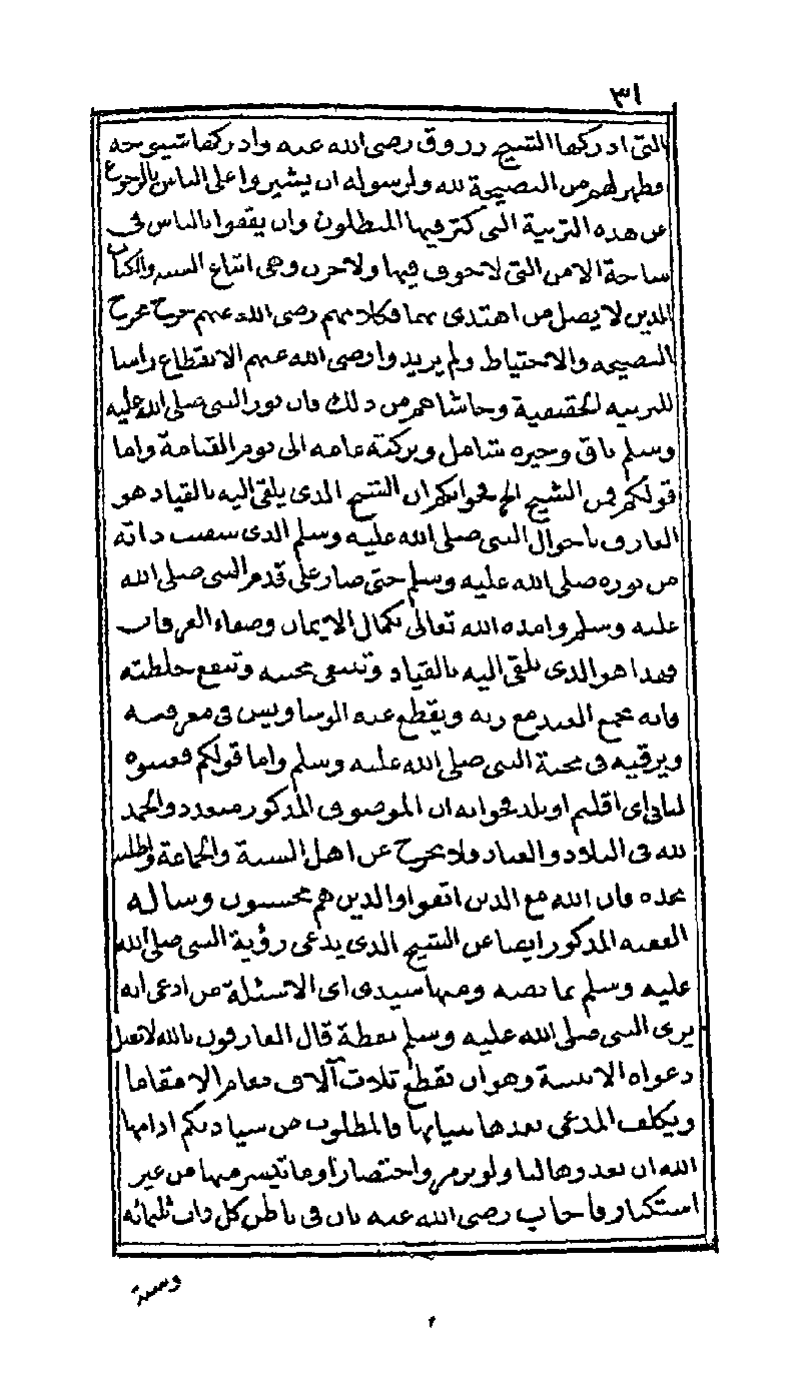 ٣١
التى ادركها الشيخ زروق رضى الله عنه وادركها شيوخه
فظهر لهم من النصيحة لله ولرسوله ان يشيروا على الناس بالرجوع
عن هذه التربية التى كثر فيها المبطلون وان يقفوا بالناس فى
ساحة الامن التى لا خوف فيها ولا حزن وهى اتباع السنة والكتاب
الذين لا يضل من اهتدى بهما فكلامهم رضى الله عنهم خرج مخرج
النصيحة والاحتياط ولم يريدوا رضى الله عنهم الانقطاع راسا
للتربية الحقيقية وحاشاهم من ذلك فان نور النبى صلى الله عليه
وسلم باق وخيره شامل وبركته عامه الى يوم القيامة واما
قولكم فمن الشيخ الخ فجوابكم ان الشيخ الذى يلقى اليه بالقياد هو
العارف باحوال النبى صلى الله عليه وسلم الذى سقيت ذاته
من نوره صلى الله عليه وسلم حتى صار على قدم النبى صلى الله
عليه وسلم وامده الله تعالى بكمال الايمان وصفاء العرفان
فهذا هو الذى يلقى اليه بالقياد وتنبغى محبته وتنفع خلطته
فانه يجمع العبد مع ربه ويقطع عنه الوساويس فى معرفته
ويرقيه فى محبة النبى صلى الله عليه وسلم واما قولكم فعينوه
لنا فى اى اقليم او بلد فجوابه ان الموصوف المذكور متعدد والحمد
لله فى البلاد والعباد ولا يخرج عن اهل السنة والجماعة فاطلبه
تجده فان الله مع الذين اتقوا والذين هم محسنون وساله
الفقيه المذكور ايضا عن الشيخ الذى يدعى رؤية النبى صلى الله
عليه وسلم بما نصه ومنها سيدى اى الاسئلة من ادعى انه
يرى النبى صلى الله عليه وسلم يقظة قال العارفون بالله لا تقبل
دعواه الا ببينة وهو ان يقطع ثلاث آلاف مقام الا مقاما
ويكلف المدعى بعدها ببيانها فالمطلوب من سيادتكم ادامها
الله ان تعدوها لنا ولو برمز واختصار او ما تيسر منها من غير
استكثار فاجاب رضى الله عنه بان فى باطن كل ذات ثلثمائه
وستة